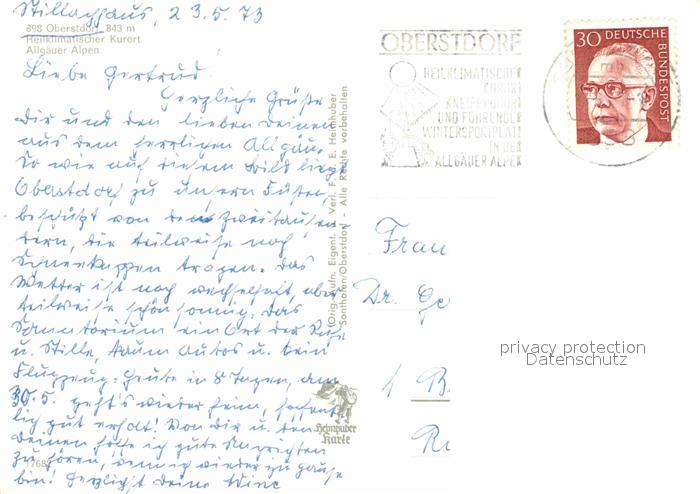 Stillachhaus, 23.5.73
898 Oberstdorf 843 m
Heilklimatischer Kurort
Allgäuer Alpen
Liebe Gertrud!
Herzliche Grüße
Dir und den lieben Deinen
aus dem herrlichen Allgäu.
So wie auf diesem Bild liegt
Oberstdorf zu unsern Füßen,
beschützt von den Zweitausen-
dern, die teilweise noch
Schneekappen tragen. Das
Wetter ist noch wechselhaft, aber
teilweise schön sonnig. Das
Sanatorium ein Ort der Ruhe
u. Stille, kaum Autos u. kein
Flugzeug. Heute in 8 Tagen, am
30.5. geht's wieder heim, hoffent-
lich gut erholt! Von Dir u. den
Deinen hoffe ich gute Nachrichten
zu hören, wenn ich wieder zu Hause
bin! Herzlichst Deine
1768
(Orig.-Aufn. Eigent. u. Verl. F. u. E. Heimhuber
Sonthofen/Oberstdorf - Alle Rechte vorbehalten
Heimhuber
Karte
OBERSTDORF
HEILKLIMATISCHER
KURORT
KNEIPPKURORT
UND FÜHRENDER
WINTERSPORTPLATZ
IN DEN
ALLGÄUER ALPEN
30 DEUTSCHE
BUNDESPOST
mb
Frau
Dr. Ge
1 B
privacy protection
Datenschutz